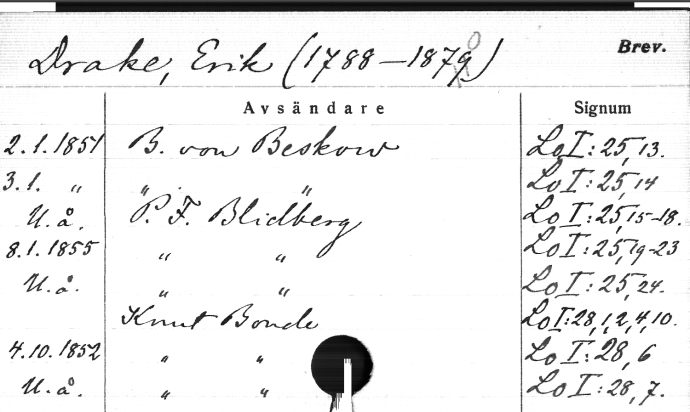 Drake, Erik (1788—1870) Brev.
Avsändare Signum
2.1.1851 B. von Beskow Lo I: 25, 13.
3.1. „ „ „ Lo I: 25, 14
U.å. P. F. Blidberg Lo I: 25, 15-18.
8.1.1855 „ „ Lo I: 25, 19-23
U.å. „ „ Lo I: 25, 24.
Knut Bonde Lo I: 28, 1, 2, 4, 10.
4.10.1852 „ „ Lo I: 28, 6
U.å. „ „ Lo I: 28, 7.